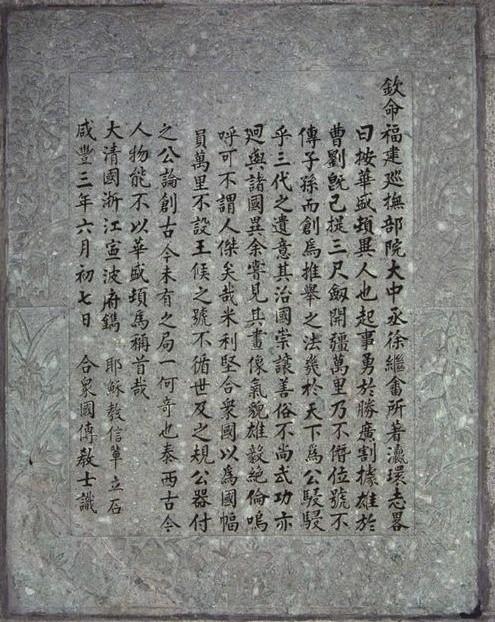 欽命福建廵撫部院大中丞徐繼畬所著瀛環志畧
曰按華盛頓異人也起事勇於勝廣割據雄於
曹劉旣已提三尺劔開疆萬里乃不僭位號不
傳子孫而創爲推舉之法幾於天下爲公駸駸
乎三代之遺意其治國崇讓善俗不尚武功亦
迥與諸國異余嘗見其畫像氣貌雄毅絶倫嗚
呼可不謂人傑矣哉米利堅合衆國以爲國幅
員萬里不設王侯之號不循世及之規公器付
之公論創古今未有之局一何奇也泰西古今
人物能不以華盛頓爲稱首哉
大清國浙江宁波府鐫 耶穌教信輩立石
咸豐三年六月初七日 合衆國傳教士識